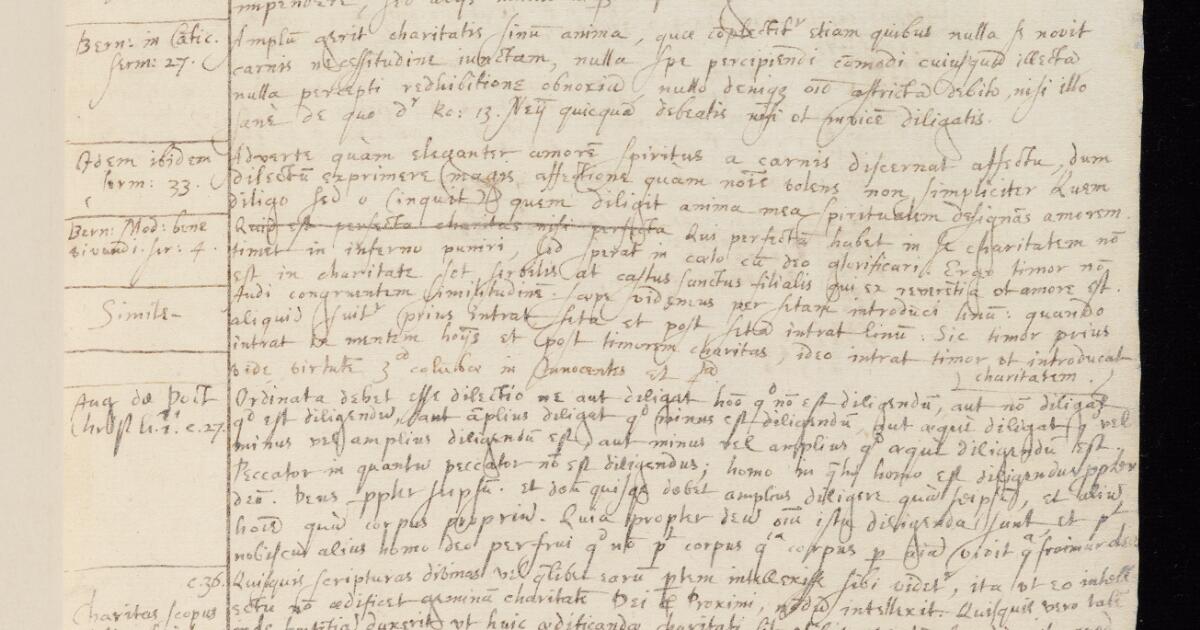 Bern: in Cātic. serm: 27.
Amplū gerit charitatis sinū anima, quæ cōplectitr etiam quibus nulla se novit
carnis necessitudine iunctam, nulla spe percipiendi cōmodi cuiusquā illectā
nulla percepti redhibitione obnoxiā, nullo deniqȝ oīo astrictā debito, nisi illo
sanè de quo dr Ro: 13. Neqȝ quicquā debeatis nisi ut invicē diligatis.
Idem ibidem serm: 33.
Adverte quàm eleganter amorē spiritus a carnis discernat affectu, dum
dilectū exprimere magis affectione quam noīe volens non simpliciter Quem
diligo sed o (inquit) quem diligit anima mea, spiritualem designās amorem.
Bern: Mod: bene vivendi. ser: 4.
Quid est perfecta charitas nisi perfecta Qui perfectā habet in se charitatem nō
timet in inferno puniri, sed sperat in cœlo cū deo glorificari. Ergo timor nō
est in charitate sct servilis at castus sanctus filialis qui ex reverētia et amore est.
Simile
Audi congruentem similitudinē. sæpe videmus per setam introduci linū: quando
aliquid suitr prius intrat seta et post setā intrat linū: Sic timor prius
intrat in mentem hoīs et post timorem charitas, ideo intrat timor ut introducat
charitatem.
vide virtutē 3 columbæ in Innocentes et
Aug de Doct Christ li. 1. c. 27.
Ordinata debet esse dilectio ne aut diligat hoō qd nō est diligendū, aut nō diligat
qd est diligendū, aut āplius diligat qd minus est diligendū, aut æqui diligat qd vel
minus vel amplius diligendū est, aut minus vel amplius qd æquè diligendū est.
Peccator in quantū peccator nō est diligendus; homo in qtū homo est diligendus ppter
deō. Deus ppter seipsū. et deū quisqȝ debet amplius diligere quā seipsū, et aliū
hoīē quā corpus propriū. Quia propter deū oīa ista diligenda sunt, et pt
nobiscū alius homo deo perfrui qd nō pt corpus qa corpus p aīā vivit qa fruimur deo
c. 36.
Quisquis scripturas divinas vel qlibet earū ptem intellexisse sibi videtr, ita ut eo intell
ectu nō ædificet geminā charitatē Dei & Proximi, nodū intellexit. Quisquis vero talē
Charitas scopus
inde sententiā duxerit ut huic ædificandæ charitati sit